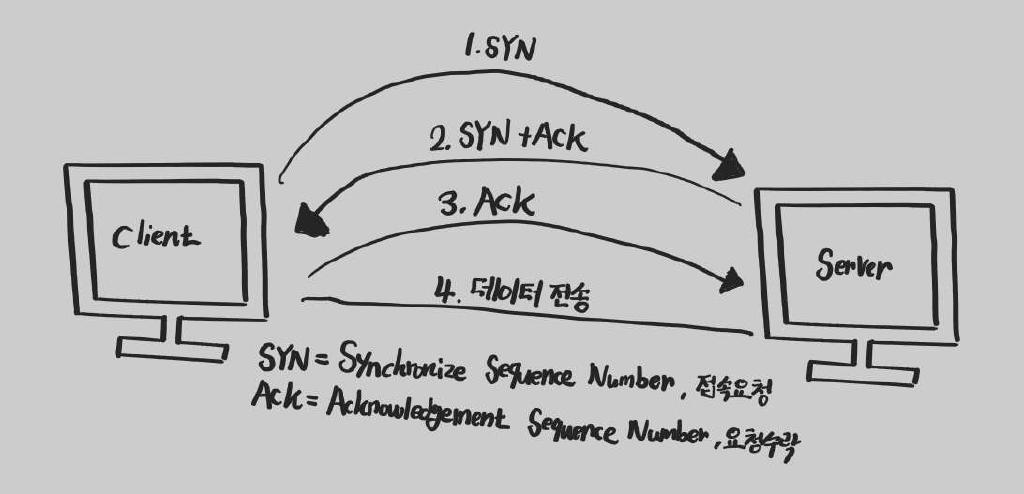 1. SYN
2. SYN +Ack
3. Ack
Client
Server
4. 데이터 전송
SYN = Synchronize Sequence Number, 접속요청
Ack = Acknowledgement Sequence Number, 요청수락